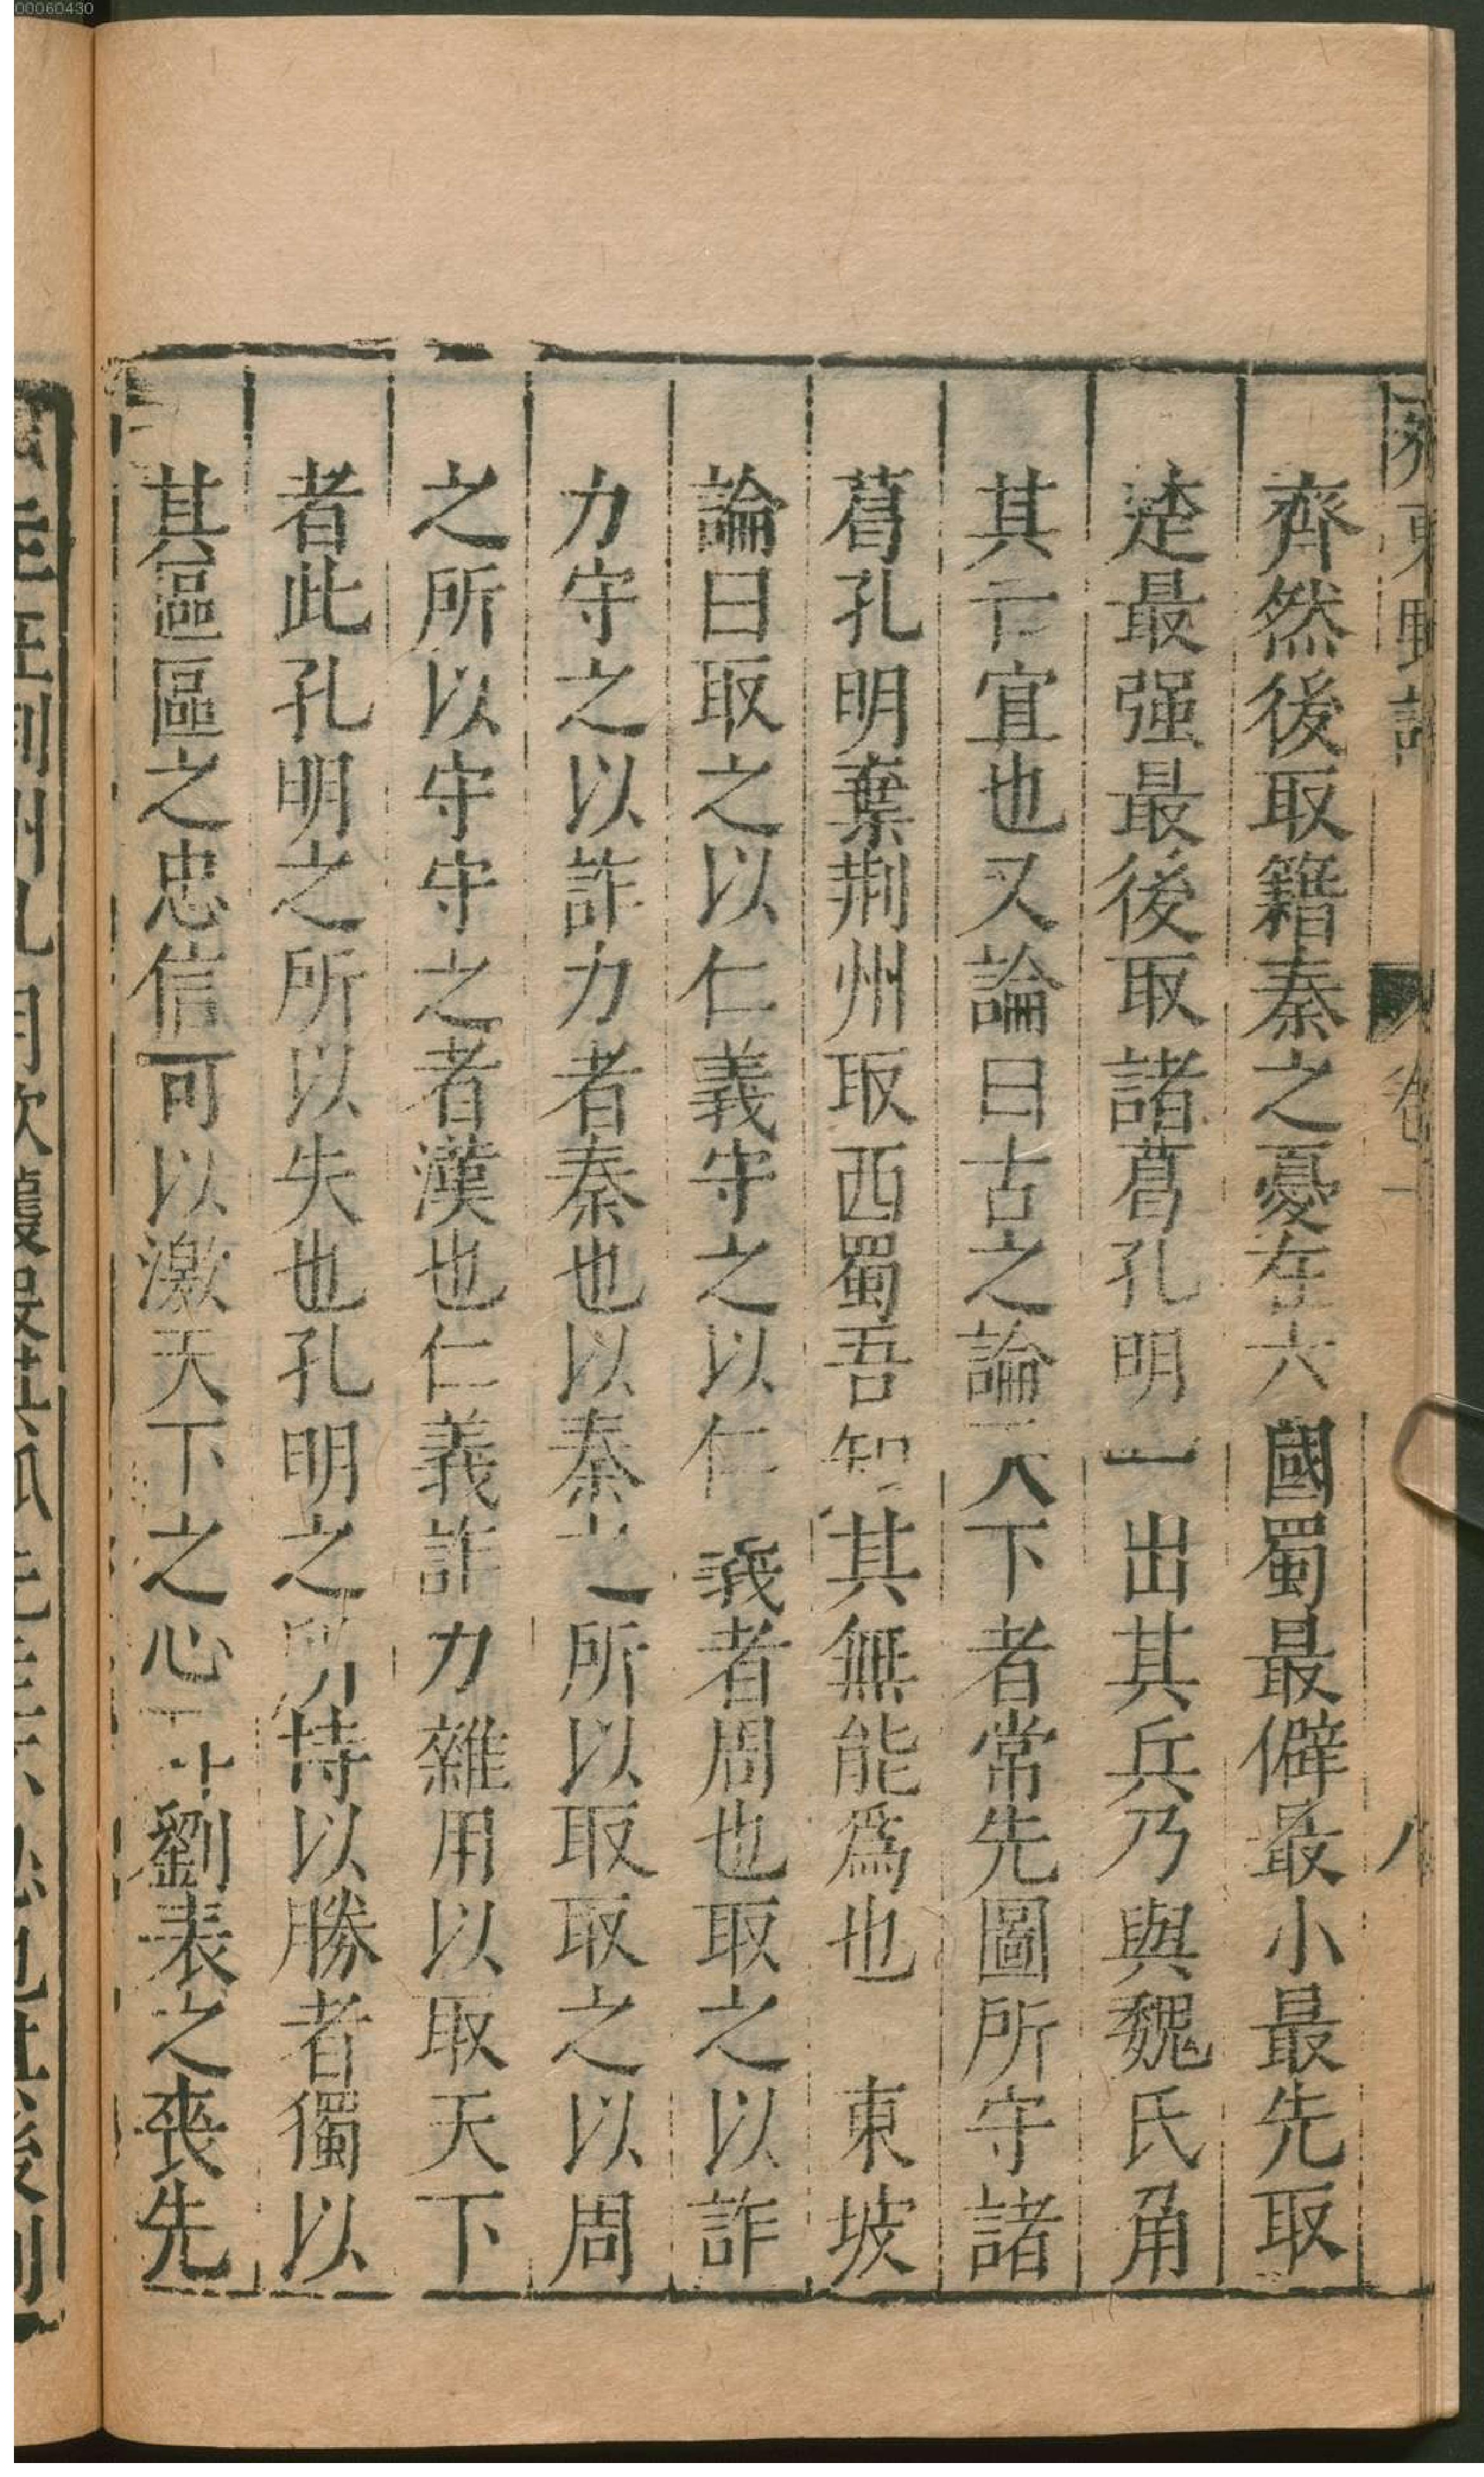 00060430
齊東野語
卷一
八
齊然後取籍秦之憂在六國蜀最僻最小最先取
楚最强最後取諸葛孔明一出其兵乃與魏氏角
其亡宜也又論曰古之論天下者常先圖所守諸
葛孔明棄荆州取西蜀吾知其無能爲也　東坡
論曰取之以仁義守之以仁義者周也取之以詐
力守之以詐力者秦也以秦之所以取取之以周
之所以守守之者漢也仁義詐力雜用以取天下
者此孔明之所以失也孔明之所恃以勝者獨以
其區區之忠信可以激天下之心耳劉表之喪先